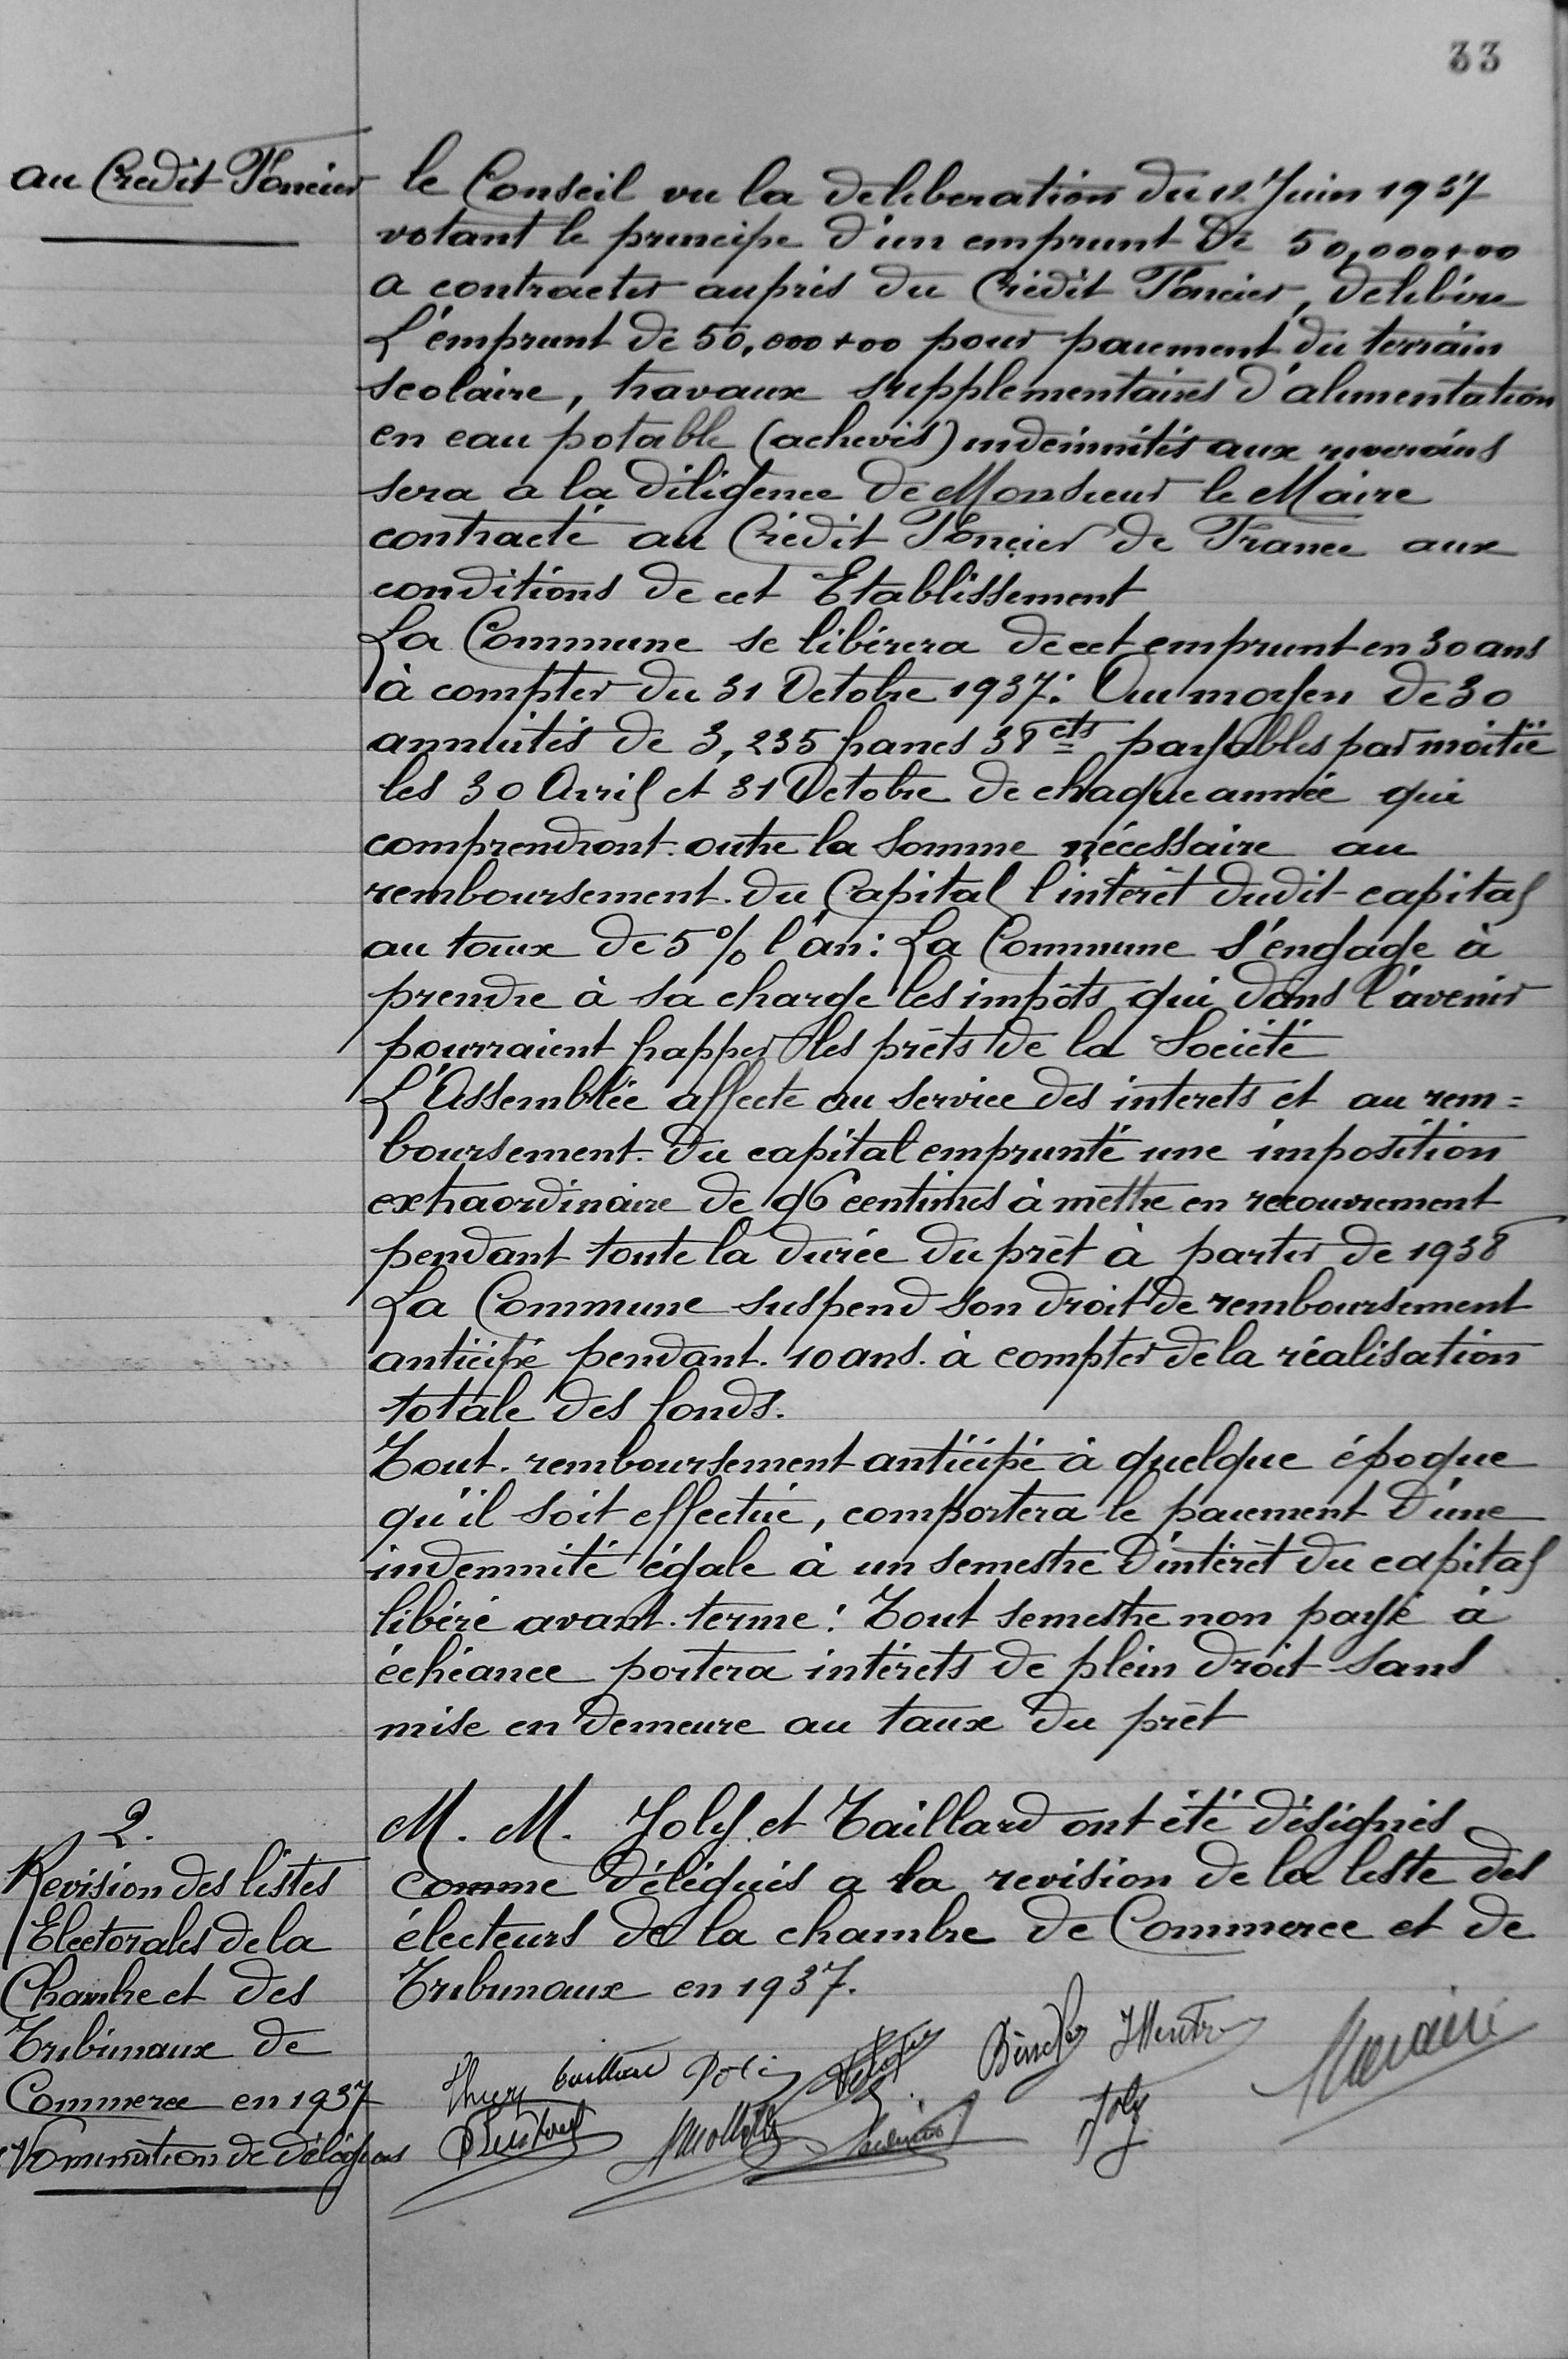 33
au Credit Foncier
le Conseil vu la deliberation du 12 Juin 1937
votant le principe d'un emprunt de 50,000+00
a contracter auprès du Crédit Foncier, delibère
L'emprunt de 50,000+00 pour paiement du terrain
scolaire, travaux supplementaires d'alimentation
en eau potable (achevés) indemnités aux riverains
sera a la diligence de Monsieur le Maire
contracté au Crédit Foncier de France aux
conditions de cet Etablissement
La Commune se libérera de cet emprunt en 30 ans
à compter du 31 Octobre 1937: Au moyen de 30
annuités de 3,235 francs 38 cts payables par moitié
les 30 Avril et 31 Octobre de chaque année qui
comprendront outre la Somme nécessaire au
remboursement du Capital l'intérêt dudit capital
au taux de 5% l'an: La Commune s'engage à
prendre à sa charge les impôts qui dans l'avenir
pourraient frapper les prêts de la Société
L'Assemblée affecte au service des interets et au rem=
boursement du capital emprunté une imposition
extraordinaire de 96 centimes à mettre en recouvrement
pendant toute la durée du prêt à partir de 1938
La Commune suspend son droit de remboursement
anticipé pendant 10 ans à compter de la réalisation
totale des fonds.
Tout remboursement anticipé à quelque époque
qu'il soit effectué, comportera le paiement d'une
indemnité égale à un semestre d'intérêt du capital
libéré avant terme: Tout semestre non payé à
échéance portera intérets de plein droit sans
mise en demeure au taux du prêt
2.
Revision des listes
Electorales de la
Chambre et des
Tribunaux de
Commerce en 1937
Nomination de délégués
M. M. Joly et Taillard ont été désignés
comme délégués a la revision de la liste des
électeurs de la chambre de Commerce et de
Tribunaux en 1937.
Joly